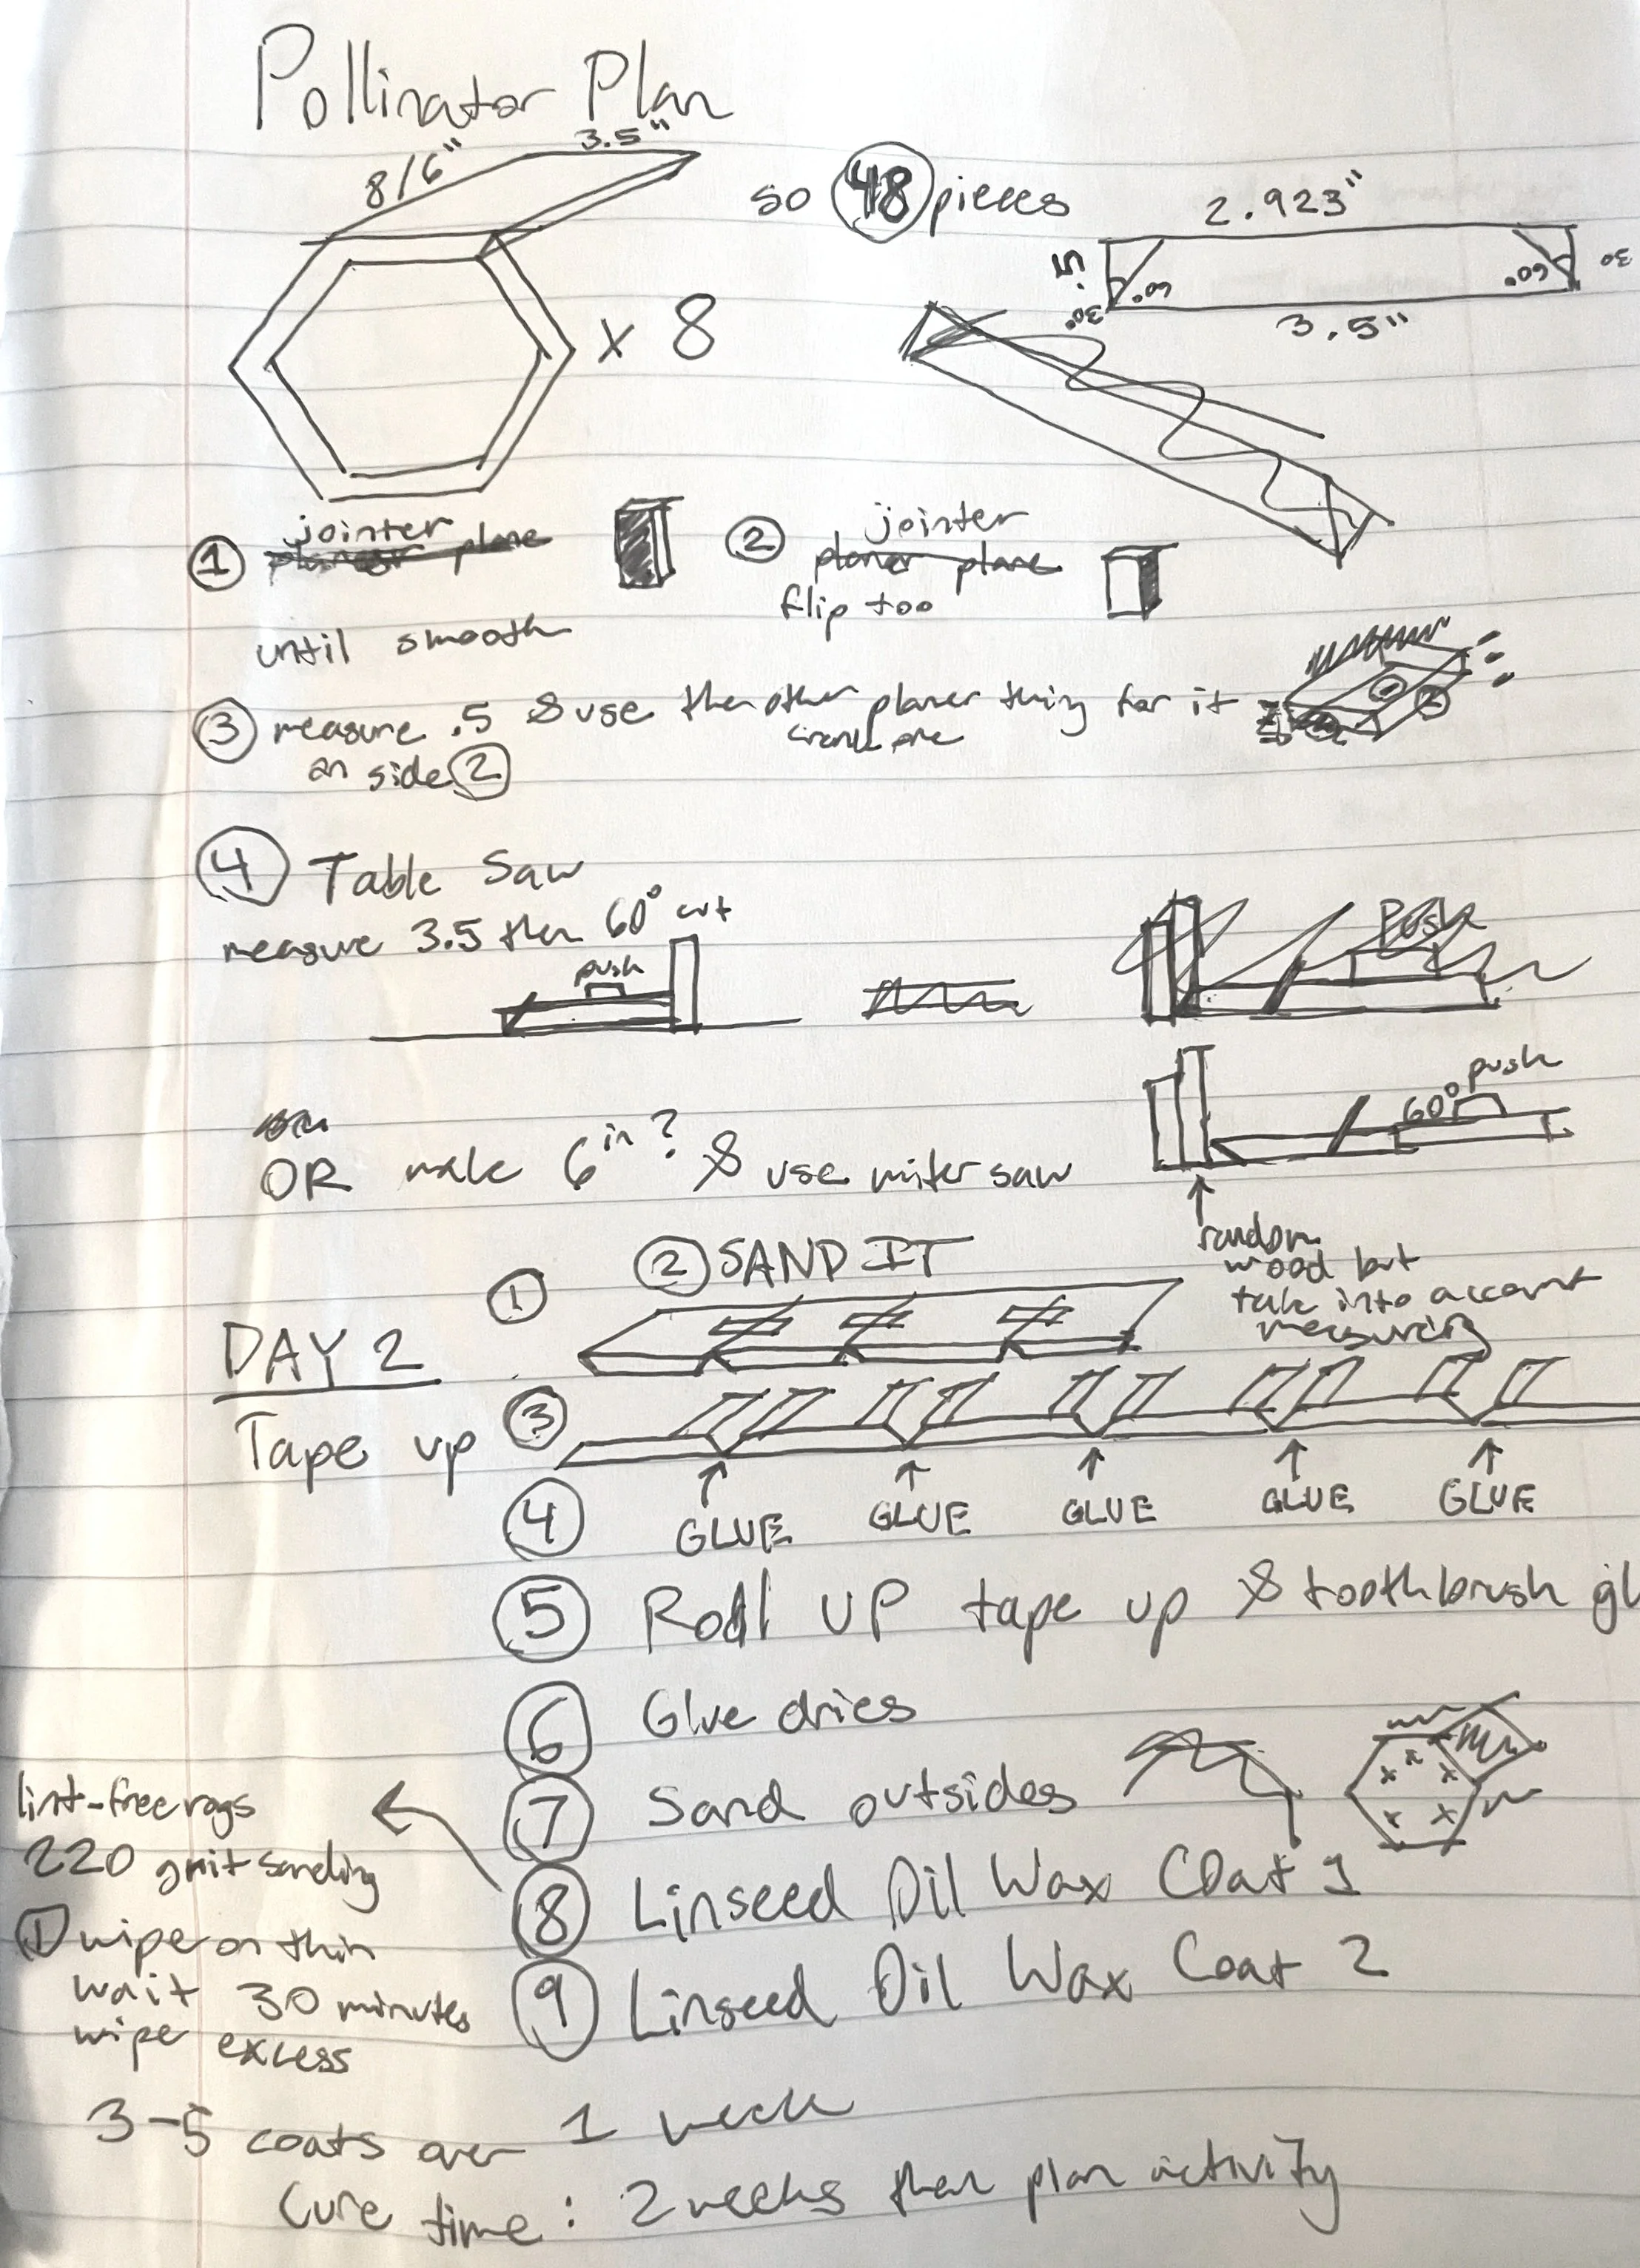 Pollinator Plan
8/6" 3.5"
x 8
so 48 pieces
2.923"
.5 60° 60° 30
30°
3.5"
1 jointer
planer plane
until smooth
2 jointer
planer plane
flip too
3 measure .5 & use the other planer thing for it
crank one
on side 2
1 2
4 Table Saw
measure 3.5 then 60° cut
push
Push
60° push
OR make 6 in? & use miter saw
random
wood but
take into account
measuring
DAY 2
1
2 SAND IT
Tape up 3
4 GLUE GLUE GLUE GLUE GLUE
5 Roll UP tape up & toothbrush gl
6 Glue dries
7 Sand outsides
8 Linseed Oil Wax Coat 1
9 Linseed Oil Wax Coat 2
lint-free rags
220 grit sanding
1 wipe on thin
wait 30 minutes
wipe excess
3-5 coats over 1 week
Cure time: 2 weeks then plan activity